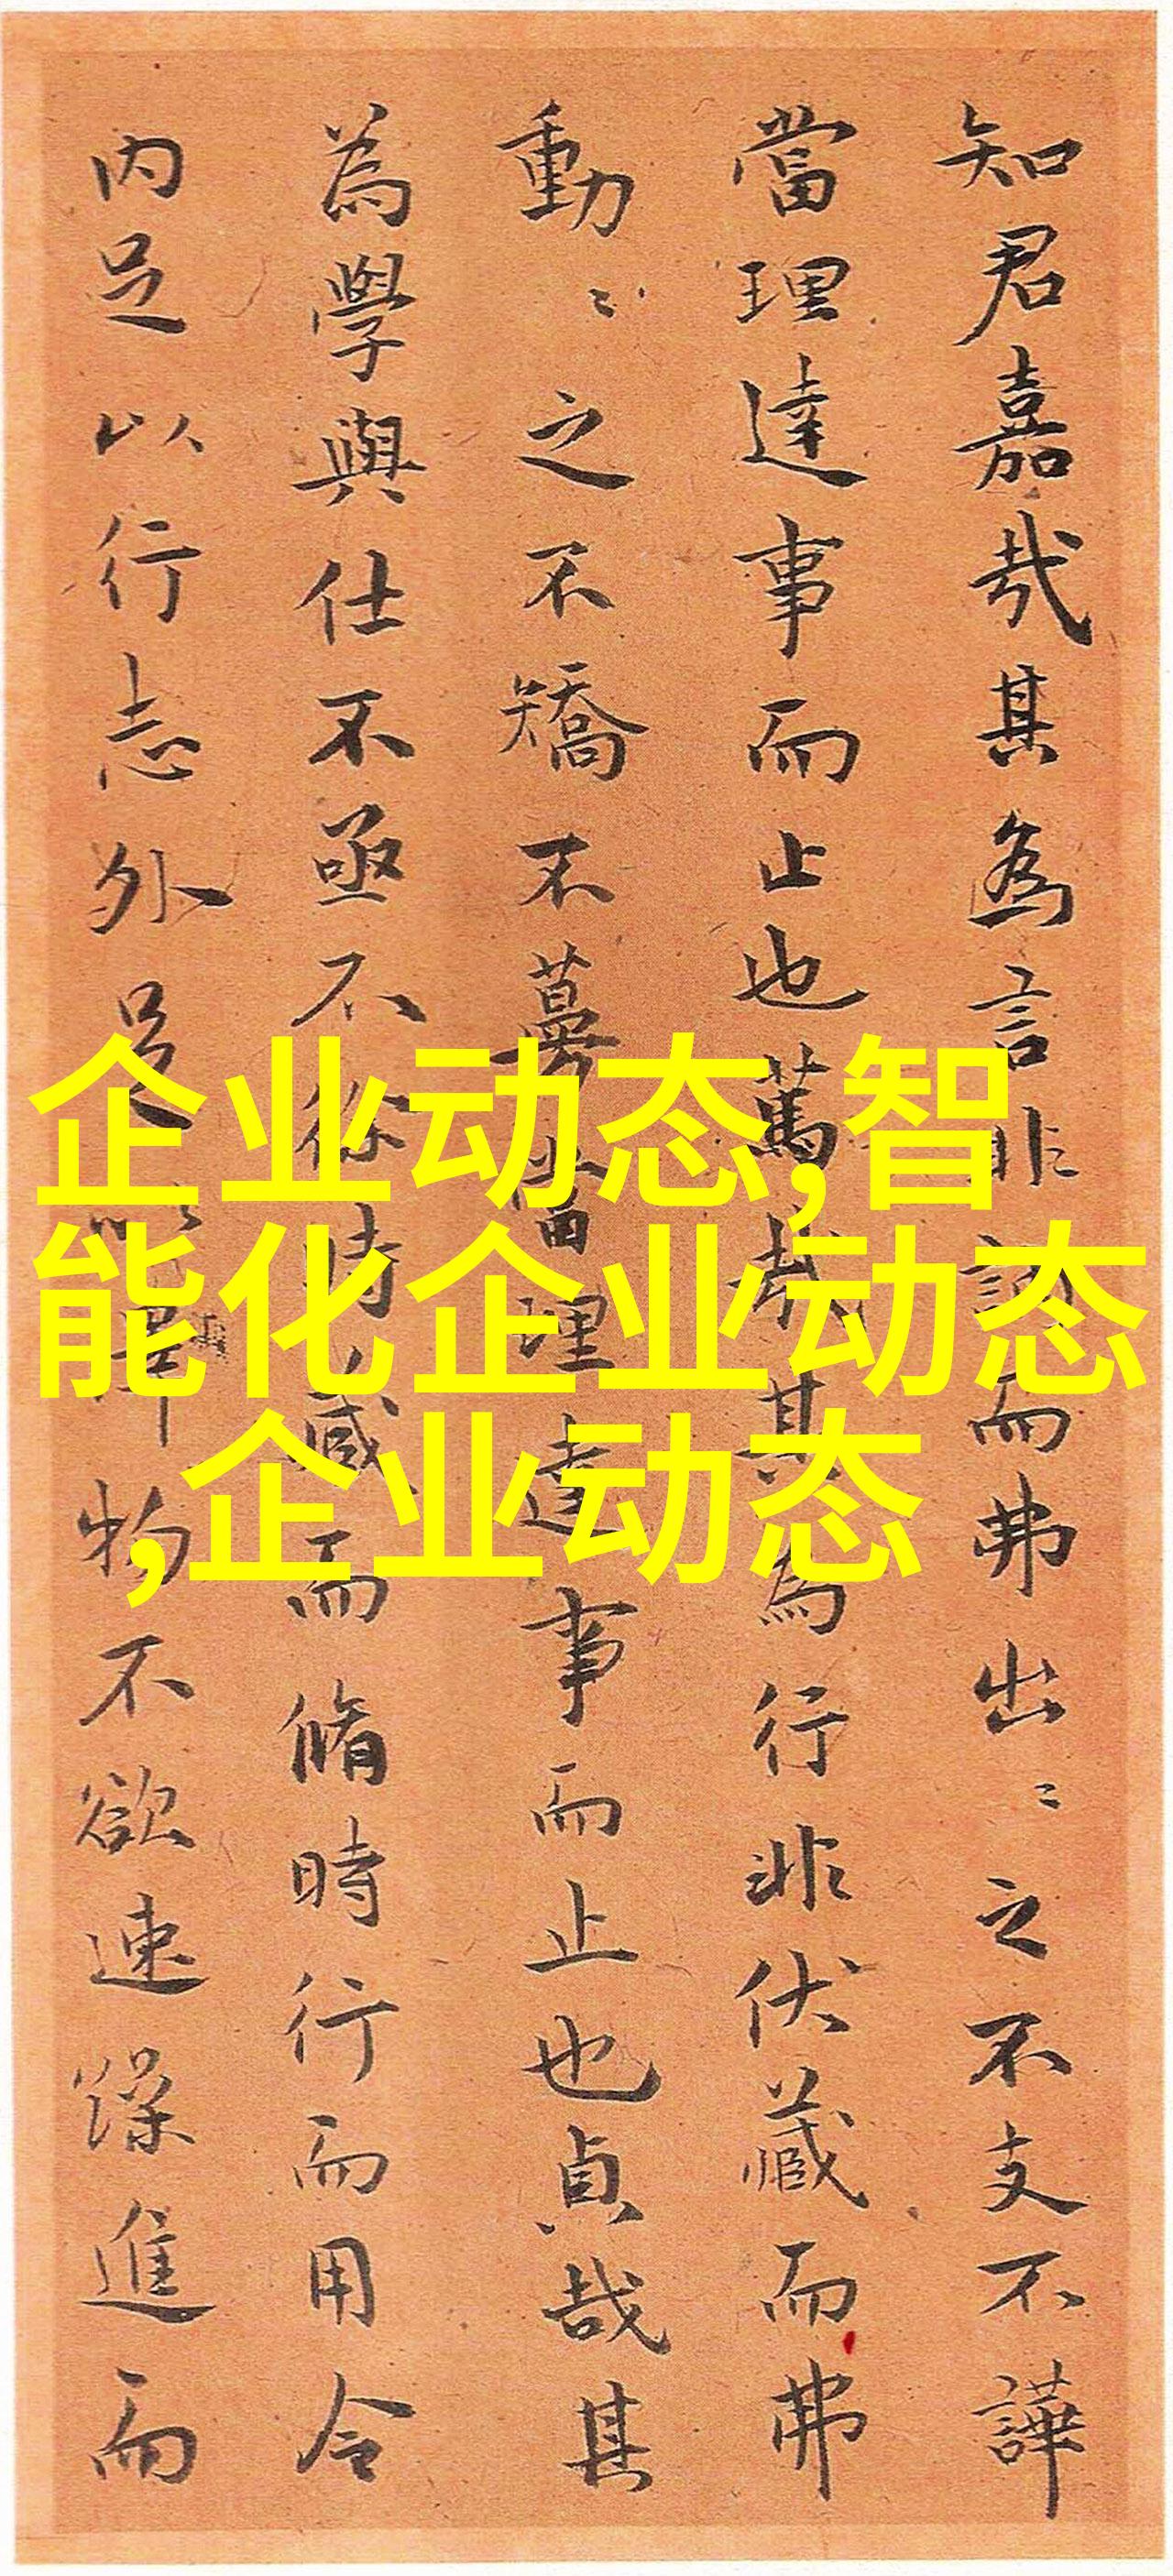 知君嘉哉其為言非訥而弗出〻之不支不譁
當理達事而止也篤哉其為行非伏藏而弗
動〻之不矯不當理達事而止也貞哉其
為學與仕不亟不徐時藏而脩時行而用令
内足以行志外足以物不欲速躁進而
企业动态,智
能化企业动态
,企业动态